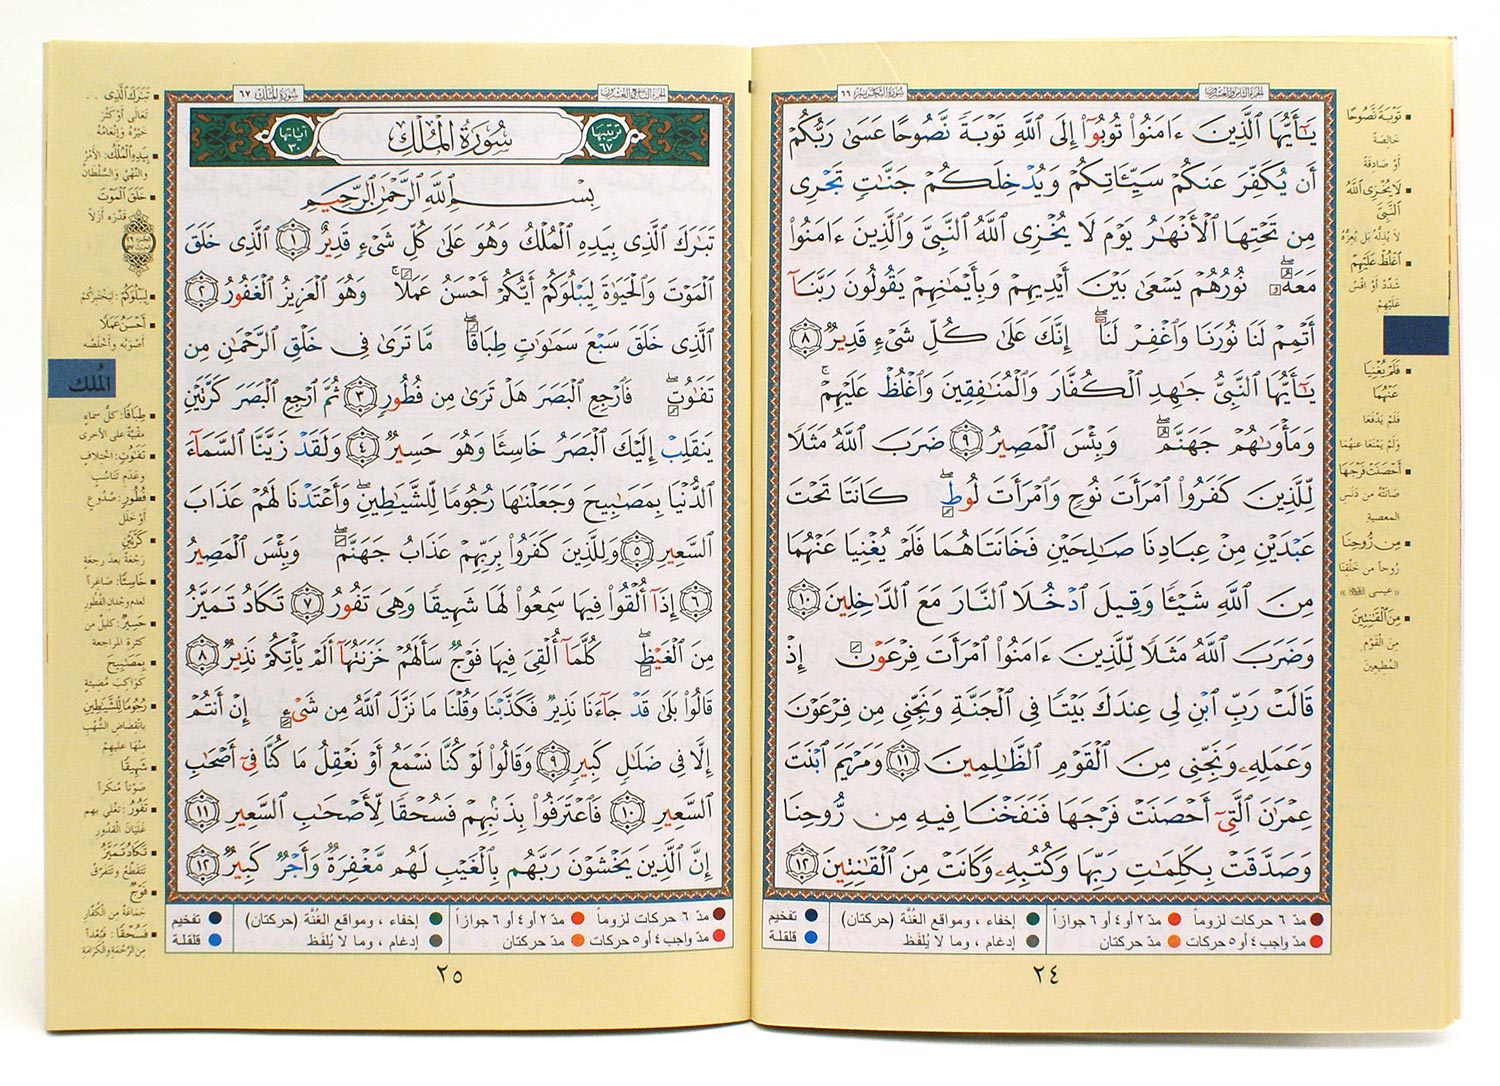 الجزء الثامن والعشرون
سورة التحريم ٦٦
يَٰٓأَيُّهَا ٱلَّذِينَ ءَامَنُوا۟ تُوبُوٓا۟ إِلَى ٱللَّهِ تَوْبَةً نَّصُوحًا عَسَىٰ رَبُّكُمْ
أَن يُكَفِّرَ عَنكُمْ سَيِّـَٔاتِكُمْ وَيُدْخِلَكُمْ جَنَّٰتٍ تَجْرِى
مِن تَحْتِهَا ٱلْأَنْهَٰرُ يَوْمَ لَا يُخْزِى ٱللَّهُ ٱلنَّبِىَّ وَٱلَّذِينَ ءَامَنُوا۟
مَعَهُۥ ۖ نُورُهُمْ يَسْعَىٰ بَيْنَ أَيْدِيهِمْ وَبِأَيْمَٰنِهِمْ يَقُولُونَ رَبَّنَآ
أَتْمِمْ لَنَا نُورَنَا وَٱغْفِرْ لَنَآ ۖ إِنَّكَ عَلَىٰ كُلِّ شَىْءٍ قَدِيرٌ ٨
يَٰٓأَيُّهَا ٱلنَّبِىُّ جَٰهِدِ ٱلْكُفَّارَ وَٱلْمُنَٰفِقِينَ وَٱغْلُظْ عَلَيْهِمْ ۚ
وَمَأْوَىٰهُمْ جَهَنَّمُ ۖ وَبِئْسَ ٱلْمَصِيرُ ٩ ضَرَبَ ٱللَّهُ مَثَلًا
لِّلَّذِينَ كَفَرُوا۟ ٱمْرَأَتَ نُوحٍ وَٱمْرَأَتَ لُوطٍ ۖ كَانَتَا تَحْتَ
عَبْدَيْنِ مِنْ عِبَادِنَا صَٰلِحَيْنِ فَخَانَتَاهُمَا فَلَمْ يُغْنِيَا عَنْهُمَا
مِنَ ٱللَّهِ شَيْـًٔا وَقِيلَ ٱدْخُلَا ٱلنَّارَ مَعَ ٱلدَّٰخِلِينَ ١٠
وَضَرَبَ ٱللَّهُ مَثَلًا لِّلَّذِينَ ءَامَنُوا۟ ٱمْرَأَتَ فِرْعَوْنَ إِذْ
قَالَتْ رَبِّ ٱبْنِ لِى عِندَكَ بَيْتًا فِى ٱلْجَنَّةِ وَنَجِّنِى مِن فِرْعَوْنَ
وَعَمَلِهِۦ وَنَجِّنِى مِنَ ٱلْقَوْمِ ٱلظَّٰلِمِينَ ١١ وَمَرْيَمَ ٱبْنَتَ
عِمْرَٰنَ ٱلَّتِىٓ أَحْصَنَتْ فَرْجَهَا فَنَفَخْنَا فِيهِ مِن رُّوحِنَا
وَصَدَّقَتْ بِكَلِمَٰتِ رَبِّهَا وَكُتُبِهِۦ وَكَانَتْ مِنَ ٱلْقَٰنِتِينَ ١٢
تَوْبَةً نَّصُوحًا
خالِصَةً
أو صَادِقَةً
لَا يُخْزِى ٱللَّهُ ٱلنَّبِىَّ
لا يُذِلُّهُ بل يُعِزُّهُ
ٱغْلُظْ عَلَيْهِمْ
شَدِّدْ أو اقْسُ
عَلَيْهِمْ
فَلَمْ يُغْنِيَا
عَنْهُمَا
فَلَمْ يَدْفَعَا
ولَمْ يَمْنَعَا عنهُما
أَحْصَنَتْ فَرْجَهَا
صَانَتْهُ من دَنَسِ
المعصية
مِن رُّوحِنَا
رُوحاً من خَلْقِنَا
« عيسى ﷺ »
مِنَ ٱلْقَٰنِتِينَ
مِنَ القَوْمِ
المُطِيعِينَ
مدّ ٦ حركات لزوماً مدّ ٢ أو ٤ أو ٦ جوازاً إخفاء ، ومواقع الغُنَّة (حركتان) تفخيم
مدّ واجب ٤ أو ٥ حركات مدّ حركتان إدغام ، وما لا يُلفَظ قلقلة
٢٤
الجزء التاسع والعشرون
سورة الملك ٦٧
ترتيبها ٦٧ سُورَةُ المُلْكِ آياتها ٣٠
بِسْمِ ٱللَّهِ ٱلرَّحْمَٰنِ ٱلرَّحِيمِ
تَبَٰرَكَ ٱلَّذِى بِيَدِهِ ٱلْمُلْكُ وَهُوَ عَلَىٰ كُلِّ شَىْءٍ قَدِيرٌ ١ ٱلَّذِى خَلَقَ
ٱلْمَوْتَ وَٱلْحَيَوٰةَ لِيَبْلُوَكُمْ أَيُّكُمْ أَحْسَنُ عَمَلًا ۚ وَهُوَ ٱلْعَزِيزُ ٱلْغَفُورُ ٢
ٱلَّذِى خَلَقَ سَبْعَ سَمَٰوَٰتٍ طِبَاقًا ۖ مَّا تَرَىٰ فِى خَلْقِ ٱلرَّحْمَٰنِ مِن
تَفَٰوُتٍ ۖ فَٱرْجِعِ ٱلْبَصَرَ هَلْ تَرَىٰ مِن فُطُورٍ ٣ ثُمَّ ٱرْجِعِ ٱلْبَصَرَ كَرَّتَيْنِ
يَنقَلِبْ إِلَيْكَ ٱلْبَصَرُ خَاسِئًا وَهُوَ حَسِيرٌ ٤ وَلَقَدْ زَيَّنَّا ٱلسَّمَآءَ
ٱلدُّنْيَا بِمَصَٰبِيحَ وَجَعَلْنَٰهَا رُجُومًا لِّلشَّيَٰطِينِ ۖ وَأَعْتَدْنَا لَهُمْ عَذَابَ
ٱلسَّعِيرِ ٥ وَلِلَّذِينَ كَفَرُوا۟ بِرَبِّهِمْ عَذَابُ جَهَنَّمَ ۖ وَبِئْسَ ٱلْمَصِيرُ
٦ إِذَآ أُلْقُوا۟ فِيهَا سَمِعُوا۟ لَهَا شَهِيقًا وَهِىَ تَفُورُ ٧ تَكَادُ تَمَيَّزُ
مِنَ ٱلْغَيْظِ ۖ كُلَّمَآ أُلْقِىَ فِيهَا فَوْجٌ سَأَلَهُمْ خَزَنَتُهَآ أَلَمْ يَأْتِكُمْ نَذِيرٌ ٨
قَالُوا۟ بَلَىٰ قَدْ جَآءَنَا نَذِيرٌ فَكَذَّبْنَا وَقُلْنَا مَا نَزَّلَ ٱللَّهُ مِن شَىْءٍ إِنْ أَنتُمْ
إِلَّا فِى ضَلَٰلٍ كَبِيرٍ ٩ وَقَالُوا۟ لَوْ كُنَّا نَسْمَعُ أَوْ نَعْقِلُ مَا كُنَّا فِىٓ أَصْحَٰبِ
ٱلسَّعِيرِ ١٠ فَٱعْتَرَفُوا۟ بِذَنۢبِهِمْ فَسُحْقًا لِّأَصْحَٰبِ ٱلسَّعِيرِ ١١
إِنَّ ٱلَّذِينَ يَخْشَوْنَ رَبَّهُم بِٱلْغَيْبِ لَهُم مَّغْفِرَةٌ وَأَجْرٌ كَبِيرٌ ١٢
تَبَٰرَكَ ٱلَّذِى . .
تَعَالَى أو كَثُرَ
خَيْرُهُ وإنْعَامُهُ
بِيَدِهِ ٱلْمُلْكُ: الأَمْرُ
والنَّهْيُ والسُّلْطَانُ
خَلَقَ ٱلْمَوْتَ
قَدَّرَهُ أزَلاً
لِيَبْلُوَكُمْ : لِيَخْتَبِرَكُمْ
أَحْسَنُ عَمَلًا
أصْوَبُه وأخْلَصُه
المُلك
طِبَاقًا: كلُّ سماءٍ
مقْبِيَّة على الأخرى
تَفَٰوُتٍ: اختلافٍ
وعَدَمِ تَنَاسُب
فُطُورٍ: صُدُوعٍ
أو خَلَل
كَرَّتَيْنِ
رَجْعَةً بعدَ رجعةٍ
خَاسِئًا: صاغراً
لعدم وِجْدان الفُطُور
حَسِيرٌ: كليلٌ من
كثرة المراجعة
بِمَصَٰبِيحَ
كَواكِبَ مُضيئةٍ
رُجُومًا لِّلشَّيَٰطِينِ
بانْقِضَاضِ الشُّهُبِ
مِنْهَا عليهِمْ
شَهِيقًا
صَوْتاً مُنْكراً
تَفُورُ : تَغْلي بهم
غَلَيَانَ القُدُورِ
تَكَادُ تَمَيَّزُ
تَتَقَطَّعُ وتَتَفَرَّقُ
فَوْجٌ
جَمَاعَةٌ مِنَ الكُفَّارِ
فَسُحْقًا : فَبُعْداً
مِنَ الرَّحْمَةِ والكَرَامَةِ
مدّ ٦ حركات لزوماً مدّ ٢ أو ٤ أو ٦ جوازاً إخفاء ، ومواقع الغُنَّة (حركتان) تفخيم
مدّ واجب ٤ أو ٥ حركات مدّ حركتان إدغام ، وما لا يُلفَظ قلقلة
٢٥